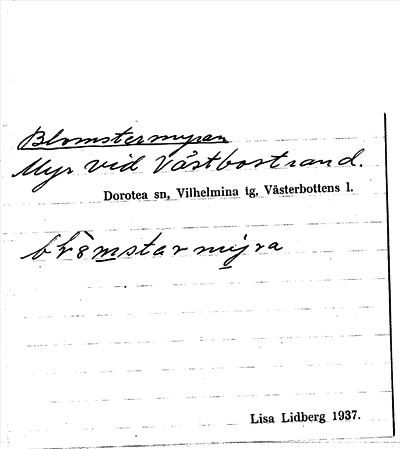 Blomstermyran
Myr vid Västbostrand.
Dorotea sn, Vilhelmina tg, Västerbottens l.
Lisa Lidberg 1937.